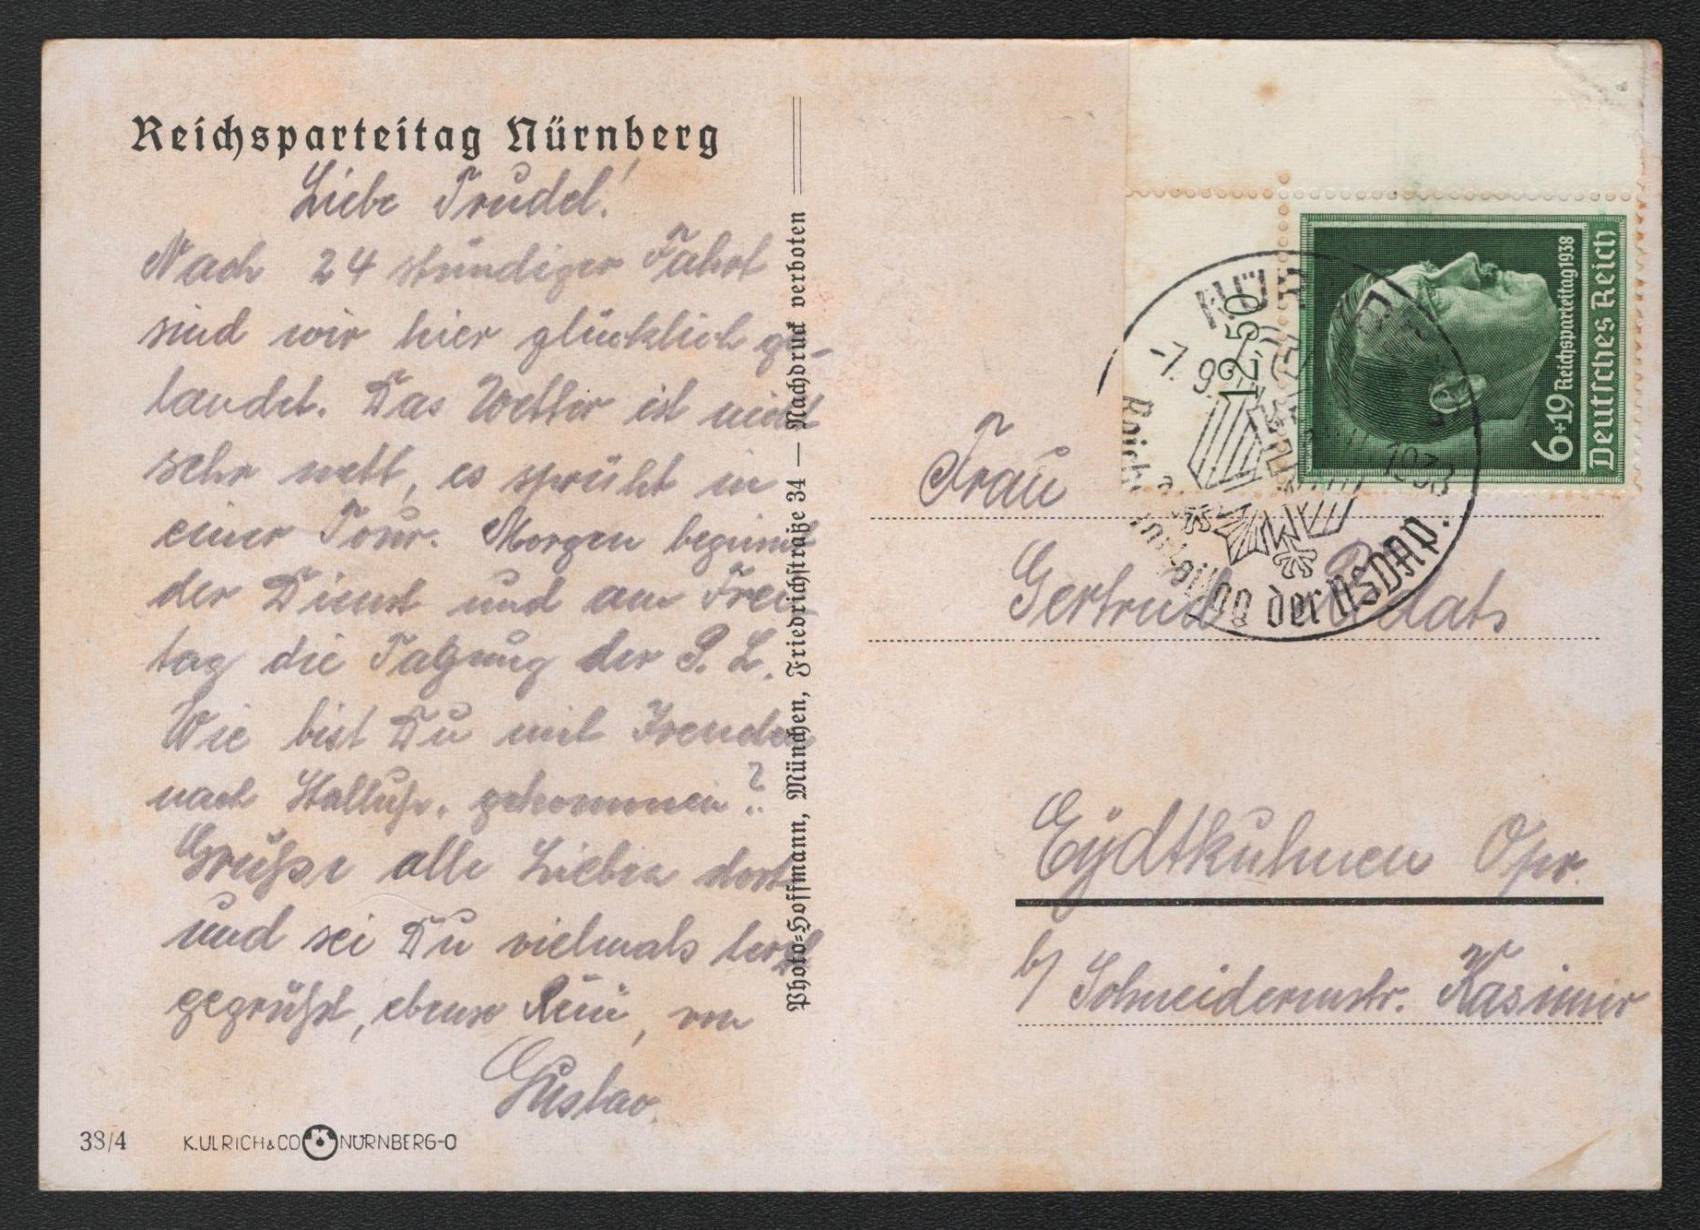 Reichsparteitag Nürnberg
Liebe Trudel!
Nach 24 stündiger Fahrt
sind wir hier glücklich ge-
landet. Das Wetter ist nicht
sehr nett, es sprüht in
einer Tour. Morgen beginnt
der Dienst und am Frei-
tag die Tagung der P. L.
Wie bist Du mit Freuden
nach gekommen?
Grüße alle Lieben dort
und sei Du vielmals herzl.
gegrüßt, ebenso von
Gustav.
38/4 K.ULRICH & CO NÜRNBERG-O
Photo-Hoffmann, München, Friedrichstraße 34 — Nachdruck verboten
6+19 Reichsparteitag 1938
Deutsches Reich
NÜRNBERG
-7.9. 12,50
1938
Reichsparteitag der NSDAP.
Frau
Gertrud
Eydtkuhnen Opr.
b/ Schneidermstr. Kasimir